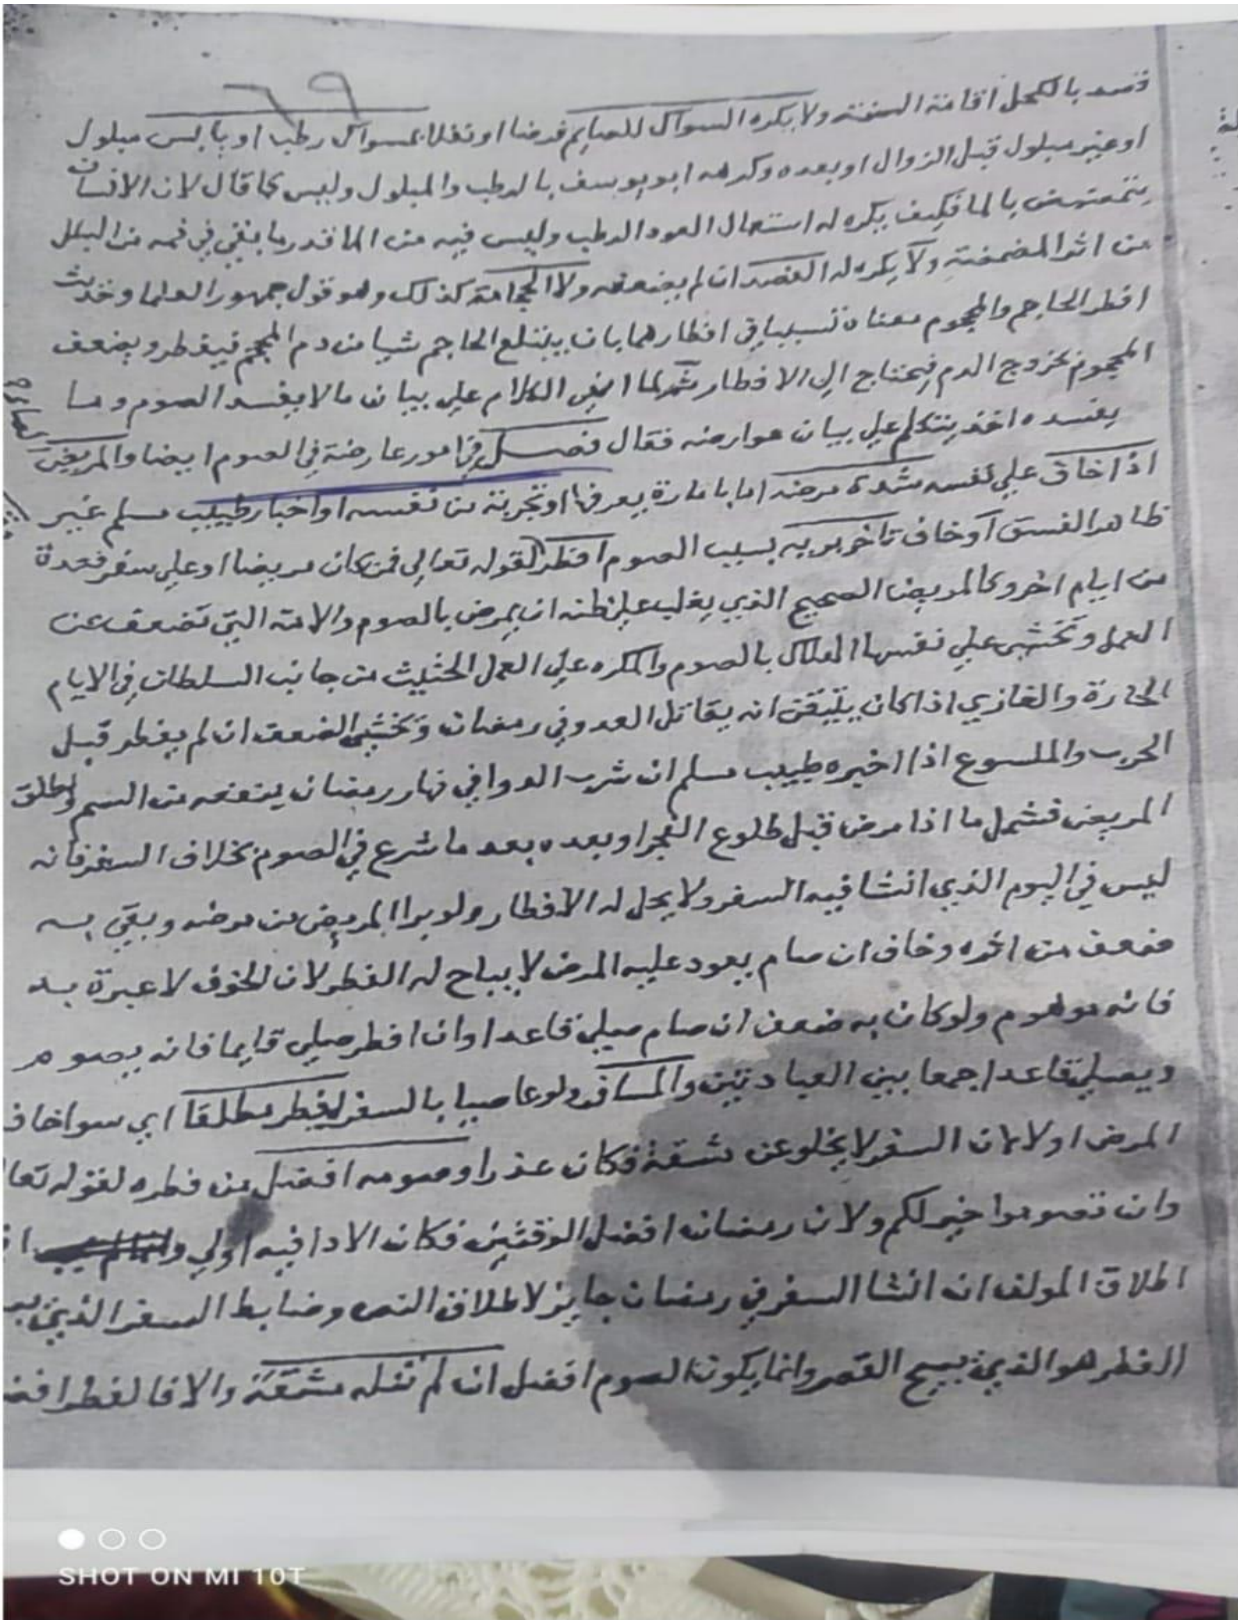 ٦٩
قصد بالكحل اقامة السنة ولا يكره السواك للصايم فرضا او نفلا بمسواك رطب او يابس مبلول
او غير مبلول قبل الزوال او بعده وكرهه ابو يوسف بالرطب والمبلول وليس كما قال لان الانسان
يتمضمض بالما فكيف يكره له استعمال العود الرطب وليس فيه من الما قدر ما بقي في فمه من البلل
من اثر المضمضة ولا يكره له الفصد ان لم يضعفه ولا الحجامة كذلك وهو قول جمهور العلما وحديث
افطر الحاجم والمحجوم معناه تسببا في افطارهما بان يبتلع الحاجم شيا من دم المحجم فيفطر ويضعف
المحجوم بخروج الدم فيحتاج الي الافطار ثم لما انهي الكلام علي بيان ما لا يفسد الصوم وما
يفسده اخذ يتكلم علي بيان عوارضه فقال فصل في امور عارضة في الصوم ايضا والمريض
اذا خاف علي نفسه شدة مرضه اما بامارة يعرفها او تجربة من نفسه او اخبار طبيب مسلم غير
ظاهر الفسق او خاف تاخر بريه بسبب الصوم افطر لقوله تعالي فمن كان مريضا او علي سفر فعدة
من ايام اخر وكالمريض الصحيح الذي يغلب علي ظنه ان يمرض بالصوم والامة التي تضعف عن
العمل وتخشي علي نفسها الهلاك بالصوم والمكره علي العمل الحثيث من جانب السلطان في الايام
الحارة والغازي اذا كان يتيقن انه يقاتل العدو في رمضان وتخشي الضعف ان لم يفطر قبل
الحرب والملسوع اذا اخبره طبيب مسلم ان شرب الدوا في نهار رمضان ينفعه من السم واطلق
المريض فشمل ما اذا مرض قبل طلوع الفجر او بعده بعد ما شرع في الصوم بخلاف السفر فانه
ليس في اليوم الذي انشا فيه السفر ولا يحل له الافطار ولو برا المريض من مرضه وبقي به
ضعف من اثره وخاف ان صام يعود عليه المرض لا يباح له الفطر لان الخوف لا عبرة به
فانه موهوم ولو كان به ضعف ان صام صلي قاعدا وان افطر صلي قايما فانه يصوم
ويصلي قاعدا جمعا بين العبادتين والمسافر ولو عاصيا بالسفر يفطر مطلقا اي سوا خاف
المرض او لا لان السفر لا يخلو عن مشقة فكان عذرا وصومه افضل من فطره لقوله تعا
وان تصوموا خير لكم ولان رمضان افضل الوقتين فكان الادا فيه اولي
اطلاق المولف ان انشا السفر في رمضان جايز لاطلاق النص وضابط السفر الذي
الفطر هو الذي يبيح القصر وانما يكون الصوم افضل ان لم تنله مشقة والا فالفطر